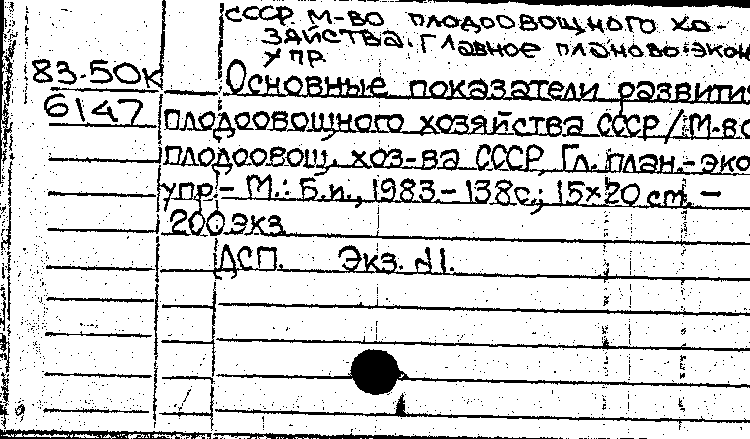 СССР. М-во плодоовощного хо-
зяйства. Главное планово-экон
упр.
83-50к
6147
Основные показатели развити
плодоовощного хозяйства СССР / М-во
плодоовощ. хоз-ва СССР, Гл. план.-эко
упр. - М.: Б.и., 1983 - 138с.; 15×20 cm. -
200 экз.
ДСП. Экз. №1.